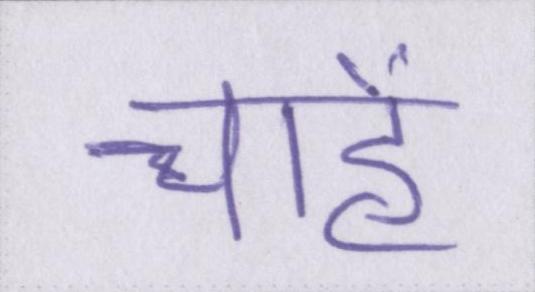 चाहें